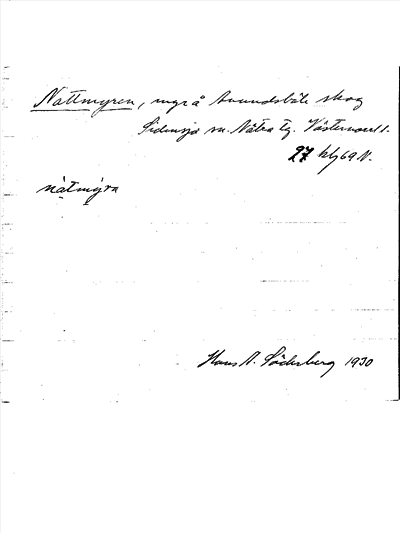 Nattmyren, myr å Anundsböle skog
Sidensjö sn. Nätra tg. Västernorrl l.
27
nàtmýra
Hans A. Söderberg 1930